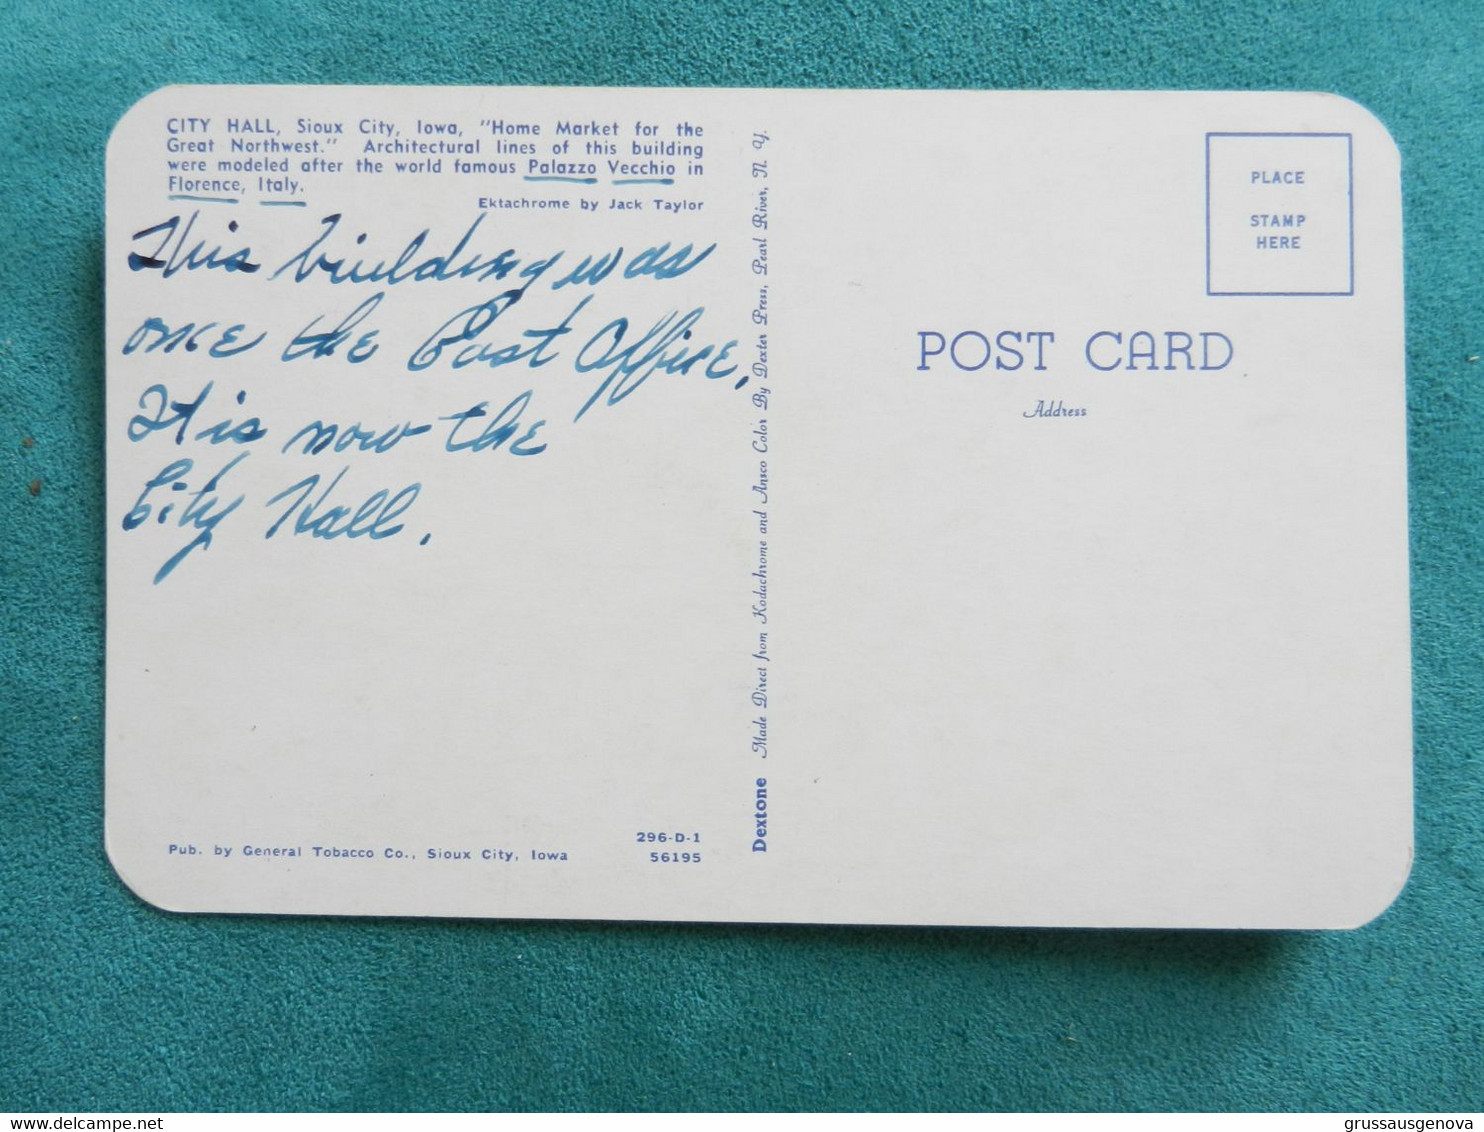 CITY HALL, Sioux City, Iowa, "Home Market for the
Great Northwest." Architectural lines of this building
were modeled after the world famous Palazzo Vecchio in
Florence, Italy.
Ektachrome by Jack Taylor
This building was
once the Post Office,
It is now the
City Hall.
Pub. by General Tobacco Co., Sioux City, Iowa
296-D-1
56195
Dextone Made Direct from Kodachrome and Ansco Color By Dexter Press, Pearl River, N. Y.
PLACE
STAMP
HERE
POST CARD
Address
www.delcampe.net
grussausgenova